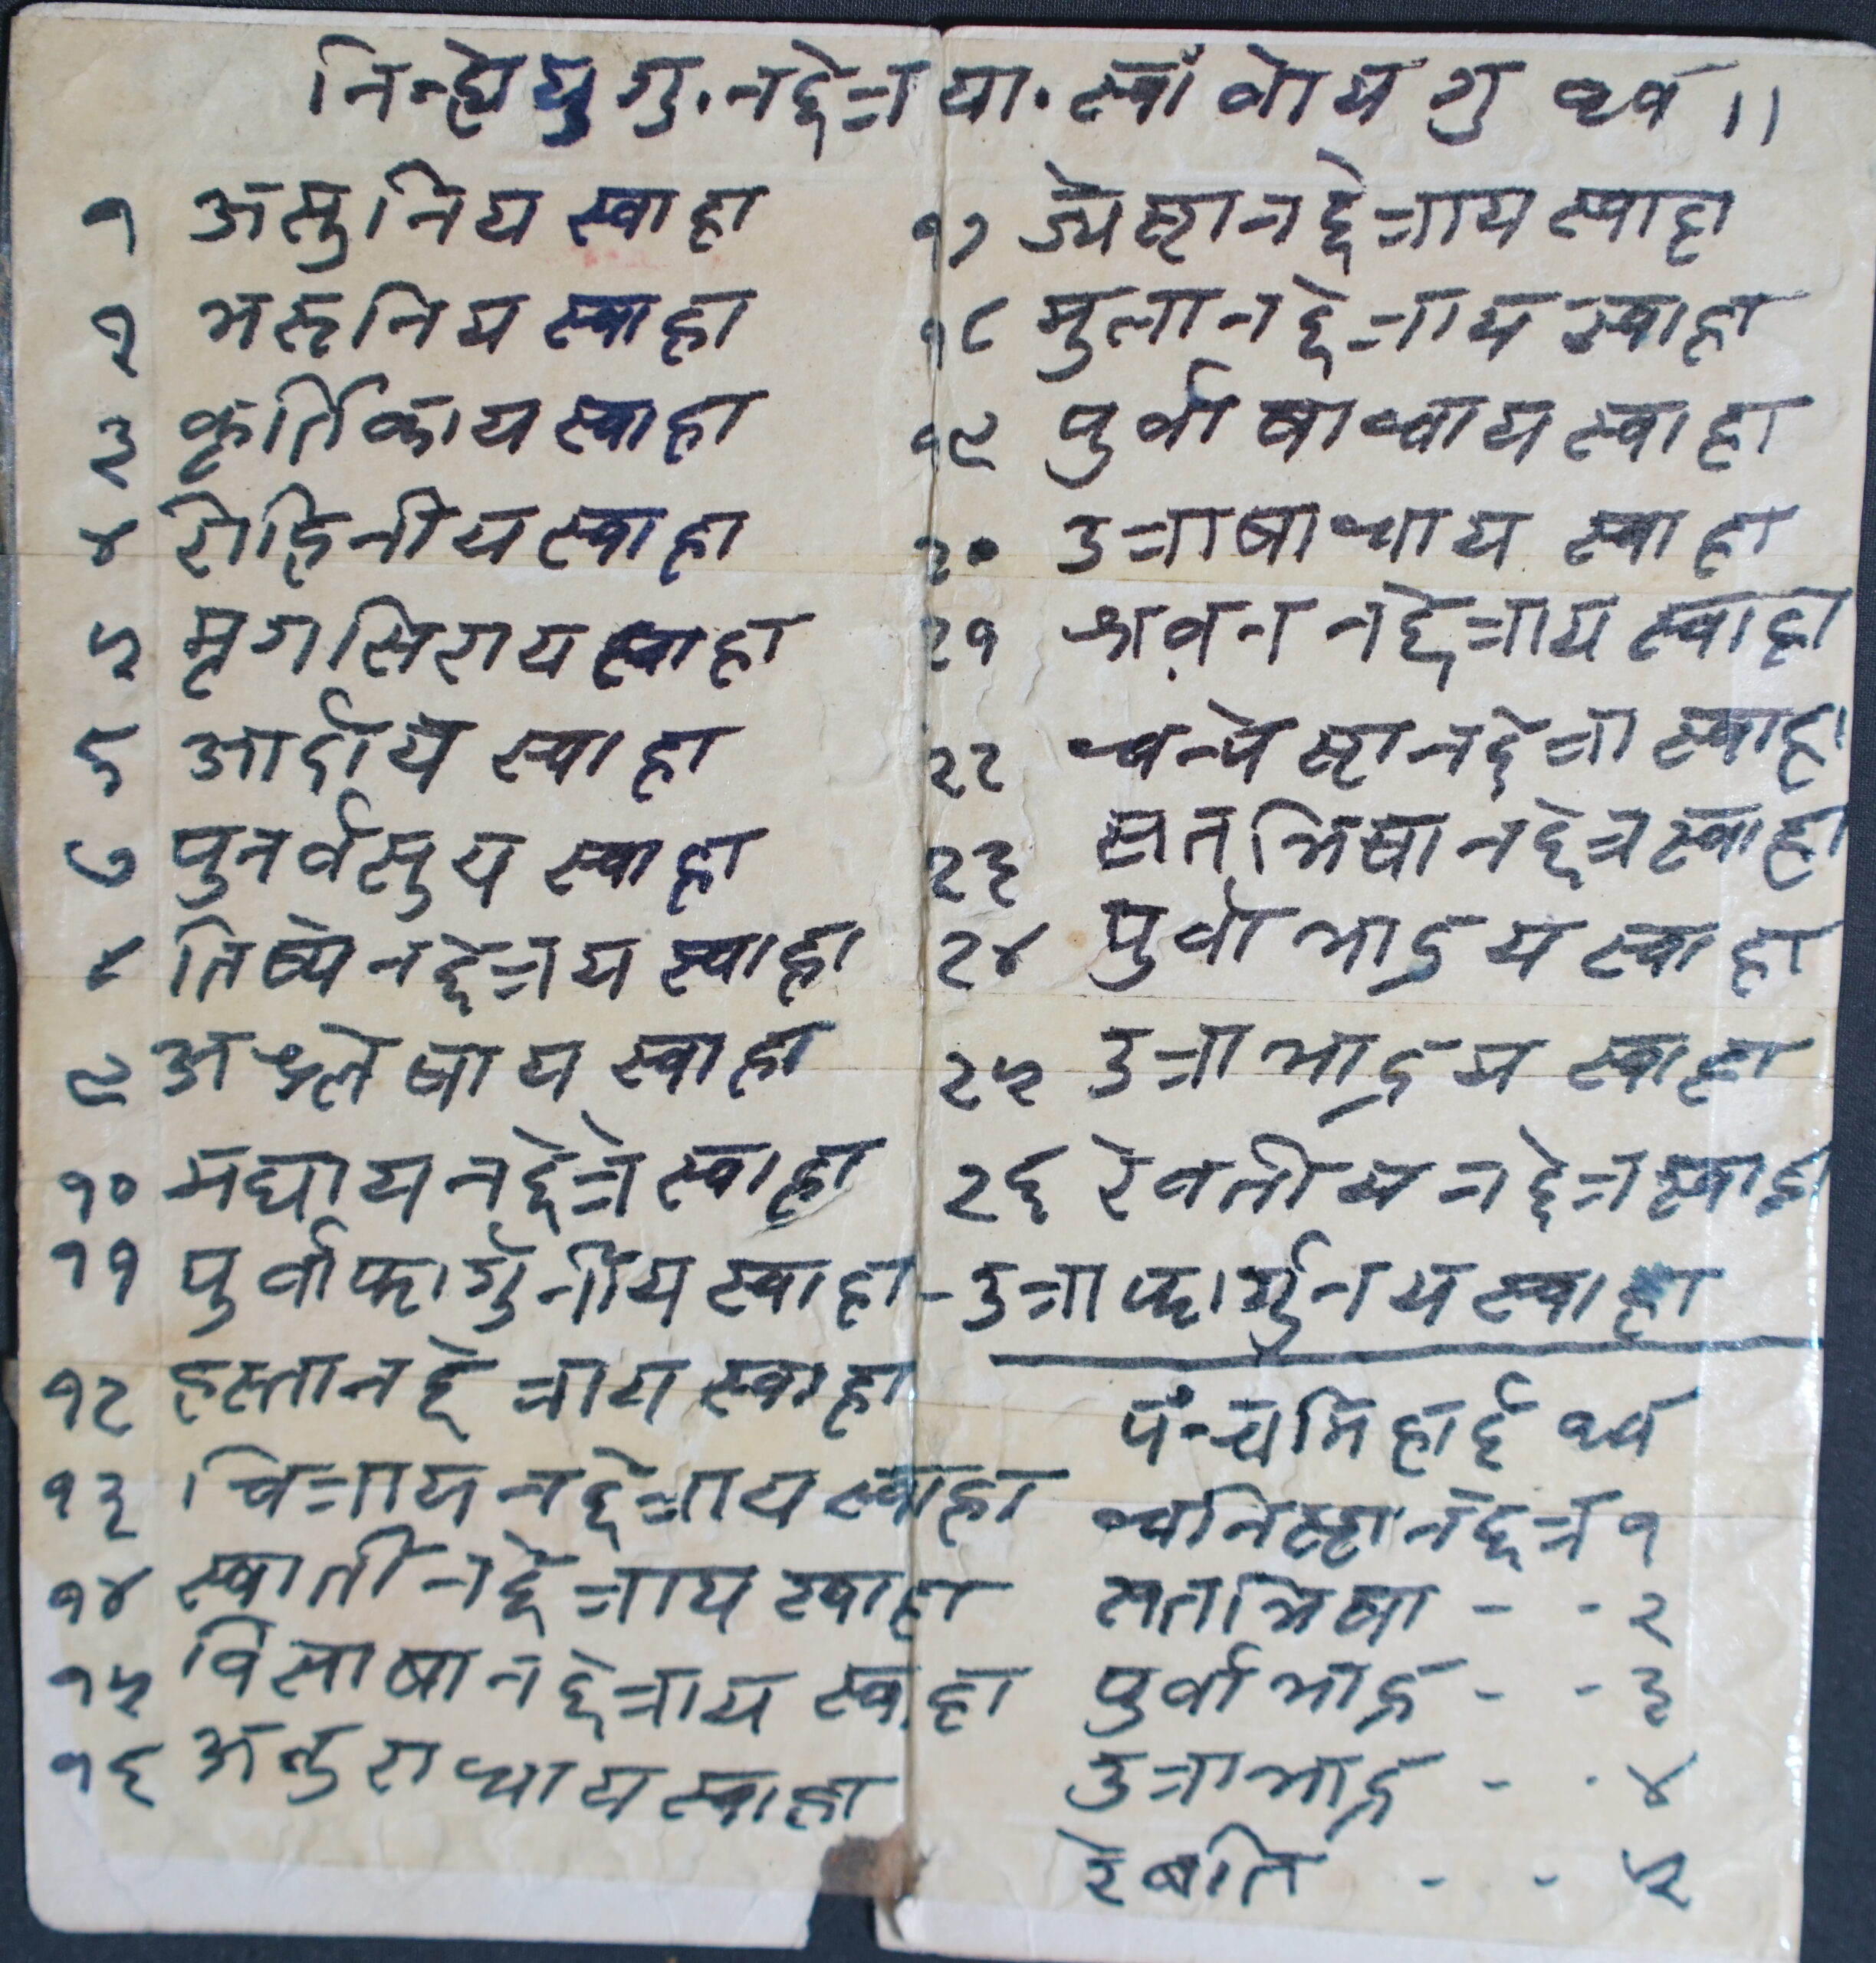 निन्हेयेगु. नछेत्र या. स्वाँ वोय गु थ्व ।।
१ असुनिय स्वाहा
२ भरुनिय स्वाहा
३ कृर्तिकाय स्वाहा
४ रोहिनीय स्वाहा
५ मृगसिराय स्वाहा
६ आर्द्राय स्वाहा
७ पुनर्वसुय स्वाहा
८ तिष्ये नछेत्रय स्वाहा
९ अश्लेषाय स्वाहा
१० मघाय नछेत्रे स्वाहा
११ पुर्वाफार्गुनीय स्वाहा - उत्राफार्गुनय स्वाहा
१२ हस्तानछेत्राय स्वाहा
१३ चित्राय नछेत्राय स्वाहा
१४ स्वाती नछेत्राय स्वाहा
१५ विसाषा नछेत्राय स्वाहा
१६ अनुराधाय स्वाहा
१७ ज्येष्ठा नछेत्राय स्वाहा
१८ मुला नछेत्राय स्वाहा
१९ पुर्वाषाधाय स्वाहा
२० उत्राषाधाय स्वाहा
२१ श्रवन नछेत्राय स्वाहा
२२ धन्येष्ठा नछेत्रा स्वाहा
२३ सतभिषा नछेत्र स्वाहा
२४ पुर्वाभाद्रय स्वाहा
२५ उत्राभाद्रय स्वाहा
२६ रेवतीय नछेत्र स्वाहा
पंन्चमिहाई थ्व
धनिष्ठा नछेत्र १
सतभिषा - - २
पुर्वाभाद्र - - ३
उत्राभाद्र - - ४
रेबति - - ५